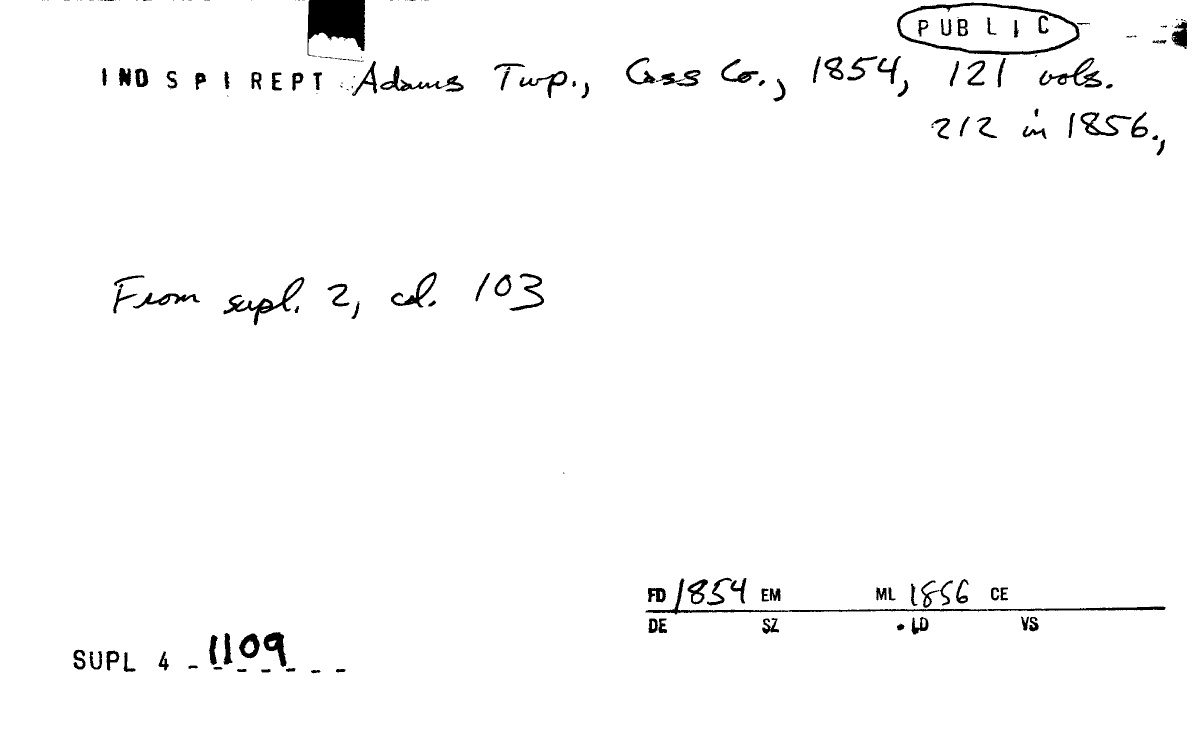 PUBLIC
INDSPIREPT Adams Twp., Cass Co., 1854, 121 vols.
212 in 1856.,
From supl. 2, col. 103
FD 1854 EM ML 1856 CE
DE SZ LD VS
SUPL 4 - 1109